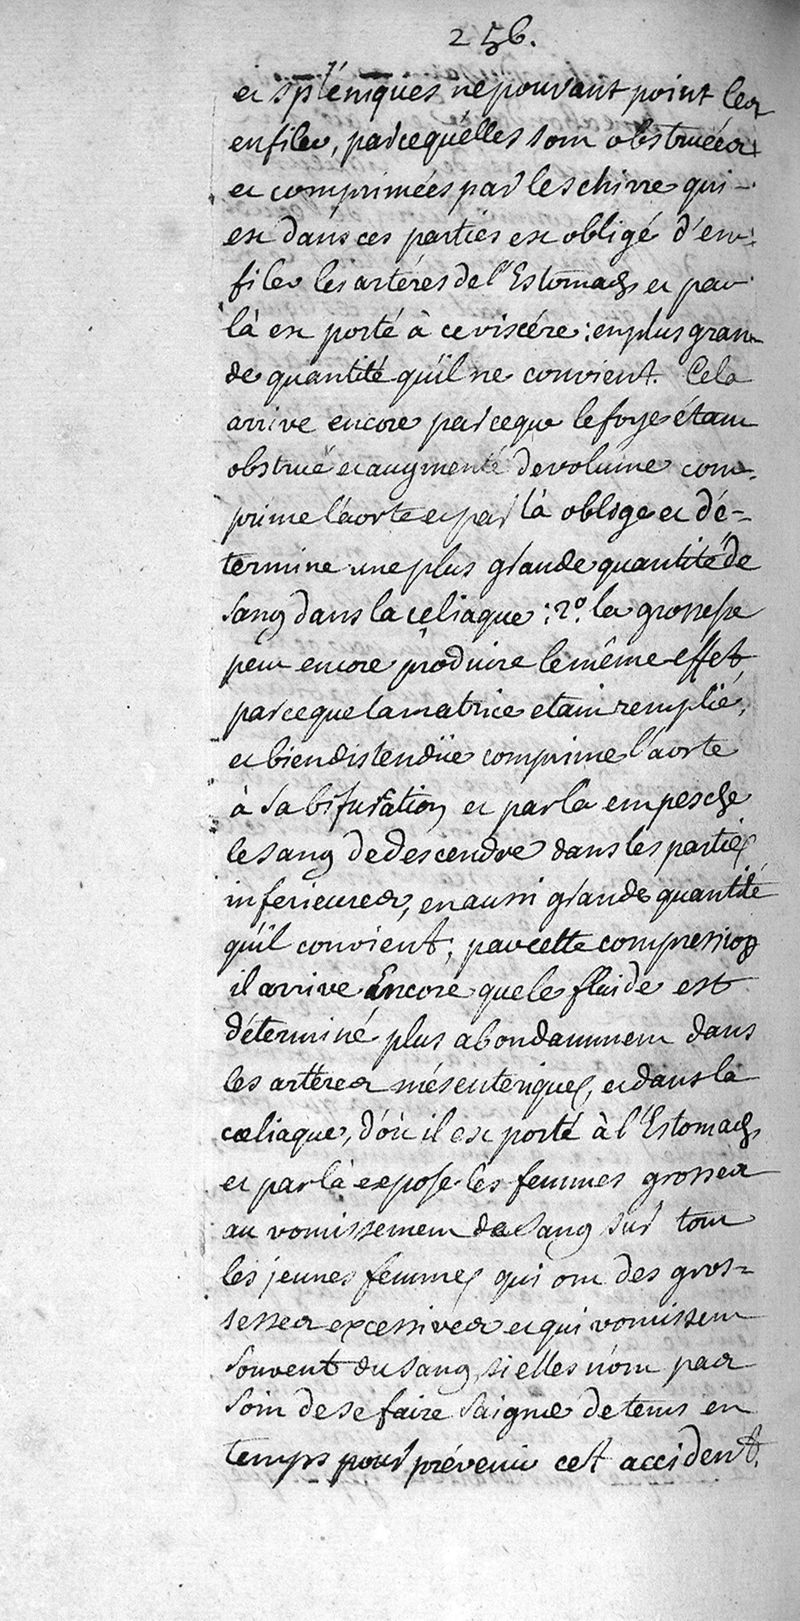 256.
et spléniques ne pouvant point les
enfiler, parcequ'elles sont obstruées
et comprimées par le schirre qui
est dans ces parties est obligé d'en-
filer les artéres de l'Estomach et par
là est porté à ce viscére : en plus gran
de quantité qu'il ne convient. Cela
arrive encore parceque le foye étant
obstrué et augmenté de volume com-
prime l'aorte et par là oblige et dé-
termine une plus grande quantité de
sang dans la celiaque : 2º. la grossesse
peut encore produire le même effet
parceque la matrice etant remplie,
et bien distendüe comprime l'aorte
à sa bifurcation et par la empesche
le sang de descendre dans les parties
inferieures, en aussi grande quantité
qu'il convient, par cette compression
il arrive Encore que le fluide est
déterminé plus abondamment dans
les artères mésenteriques, et dans la
cœliaque, d'où il est porté à l'Estomach
et par là expose les femmes grosses
au vomissement de sang sur tout
les jeunes femmes qui ont des gros-
sesses excessives et qui vomissent
souvent du sang, si elles n'ont pas
soin de se faire saigner de tems en
temps pour prévenir cet accident.